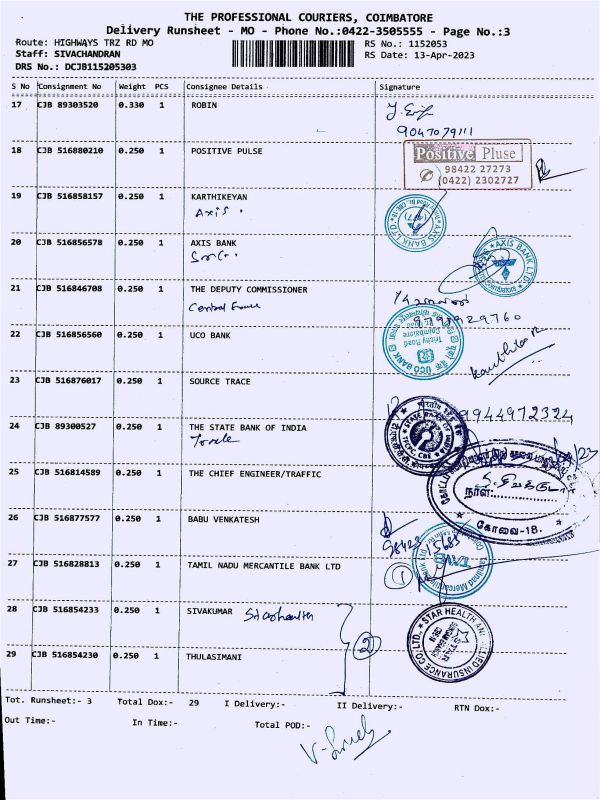 THE PROFESSIONAL COURIERS, COIMBATORE
Delivery Runsheet - MO - Phone No.:0422-3505555 - Page No.:3
Route: HIGHWAYS TRZ RD MO
RS No.: 1152053
Staff: SIVACHANDRAN
RS Date: 13-Apr-2023
DRS No.: DCJB115205303
S No Consignment No Weight PCS Consignee Details Signature
17 CJB 89303520 0.330 1 ROBIN
9047079111
18 CJB 516880210 0.250 1 POSITIVE PULSE
Positive Pluse
98422 27273
(0422) 2302727
19 CJB 516858157 0.250 1 KARTHIKEYAN
Axis
AXIS BANK LTD.
20 CJB 516856578 0.250 1 AXIS BANK
AXIS BANK LTD.
21 CJB 516846708 0.250 1 THE DEPUTY COMMISSIONER
Central
22 CJB 516856560 0.250 1 UCO BANK
UCO BANK
Trichy Road
Coimbatore
23 CJB 516876017 0.250 1 SOURCE TRACE
9944972324
24 CJB 89300527 0.250 1 THE STATE BANK OF INDIA
STATE BANK OF INDIA
25 CJB 516814589 0.250 1 THE CHIEF ENGINEER/TRAFFIC
நாள்:
கோவை-18.
26 CJB 516877577 0.250 1 BABU VENKATESH
27 CJB 516828813 0.250 1 TAMIL NADU MERCANTILE BANK LTD
Tamilnad Mercantile Bank Ltd
1
28 CJB 516854233 0.250 1 SIVAKUMAR
2
STAR HEALTH AND ALLIED INSURANCE CO. LTD.
29 CJB 516854230 0.250 1 THULASIMANI
Tot. Runsheet:- 3 Total Dox:- 29 I Delivery:- II Delivery:- RTN Dox:-
Out Time:- In Time:- Total POD:-